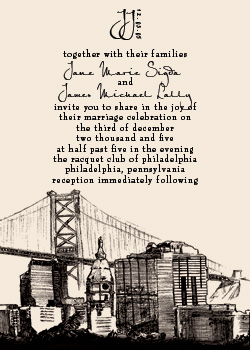 JJ
12.03.05
together with their families
Jane Marie Sigda
and
James Michael Lally
invite you to share in the joy of
their marriage celebration on
the third of december
two thousand and five
at half past five in the evening
the racquet club of philadelphia
philadelphia, pennsylvania
reception immediately following